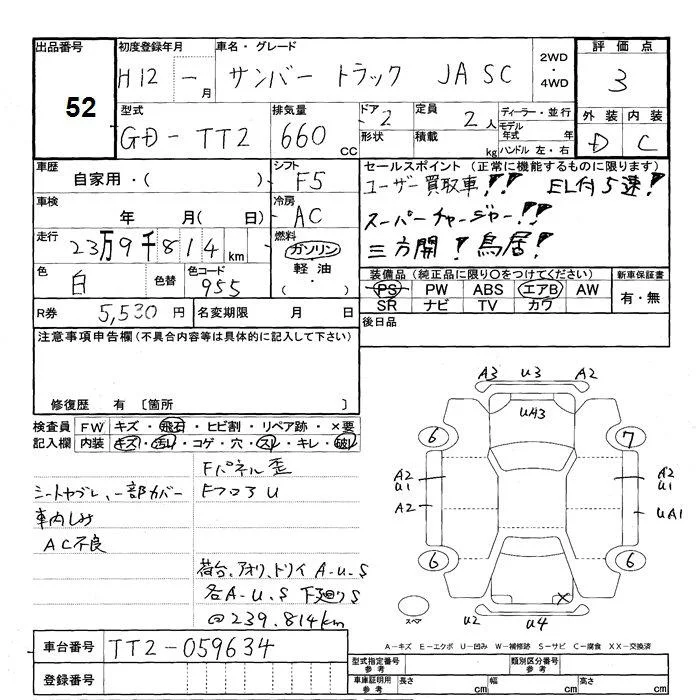 出品番号 初度登録年月 車名・グレード 2WD・4WD 評価点
52 H12 - 月 サンバー トラック JA SC 3
型式 排気量 ドア 定員 ディーラー・並行 外装 内装
GD-TT2 660 CC 2 形状 2人 積載 kg モデル年式 年 ハンドル 左・右 D C
車歴 自家用・( ) シフト F5
セールスポイント(正常に機能するものに限ります)
ユーザー買取車!! EL付5速!
車検 年 月(日) 冷房 AC
スーパーチャージャー!!
走行 23万9千814km 燃料 ガソリン 軽油・
三方開! 鳥居!
色 白 色替 色コード 955
装備品(純正品に限り○をつけてください) 新車保証書
PS PW ABS エアB AW 有・無
SR ナビ TV カワ
R券 5,530円 名変期限 月 日
後日品
注意事項申告欄(不具合内容等は具体的に記入して下さい)
修復歴 有 〔箇所 〕
検査員記入欄 FW キズ・飛石・ヒビ割・リペア跡・×要
内装 キズ・汚れ・コゲ・穴・スレ・キレ・破れ
Fパネル歪
シートヤブレ、一部カバー FフロアU
車内しみ
AC不良
荷台、アオリ、トリイ A-U-S
各A-U-S 下廻りS
@239.814km
A3 U3 A2
UA3
6 7
A2 U1 A2 U1
A2 UA1
6 6
×
スペア U2 U4
A-キズ E-エクボ U-凹み W-補修跡 S-サビ C-腐食 XX-交換済
車台番号 TT2-059634
型式指定番号参考 類別区分番号参考
登録番号
車庫証明用参考 長さ cm 幅 cm 高さ cm